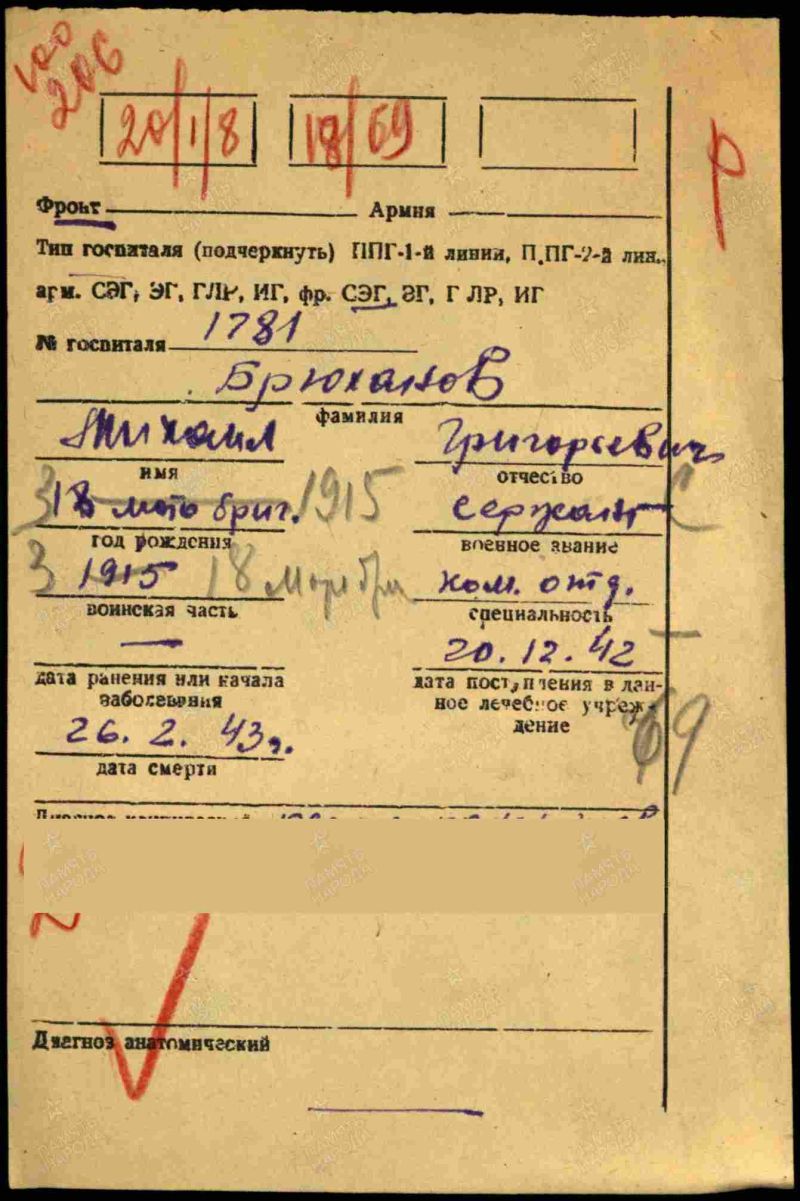 206
20/1/8 18/69
Фронт Армия
Тип госпиталя (подчеркнуть) ППГ-1-й линии, П.ПГ-2-й лин.,
арм. СЭГ, ЭГ, ГЛР, ИГ, фр. СЭГ, ЭГ, Г ЛР, ИГ
№ госпиталя 1781
Брюханов
фамилия
Михаил Григорьевич
имя отчество
3 18 мото бриг. 1915 сержант
год рождения военное звание
3 1915 18 мотобр ком. отд.
воинская часть специальность
— 20.12.42
дата ранения или начала заболевания
дата поступления в данное лечебное учреждение
26. 2. 43г. 69
дата смерти
Диагноз анатомический
ПАМЯТЬ НАРОДА